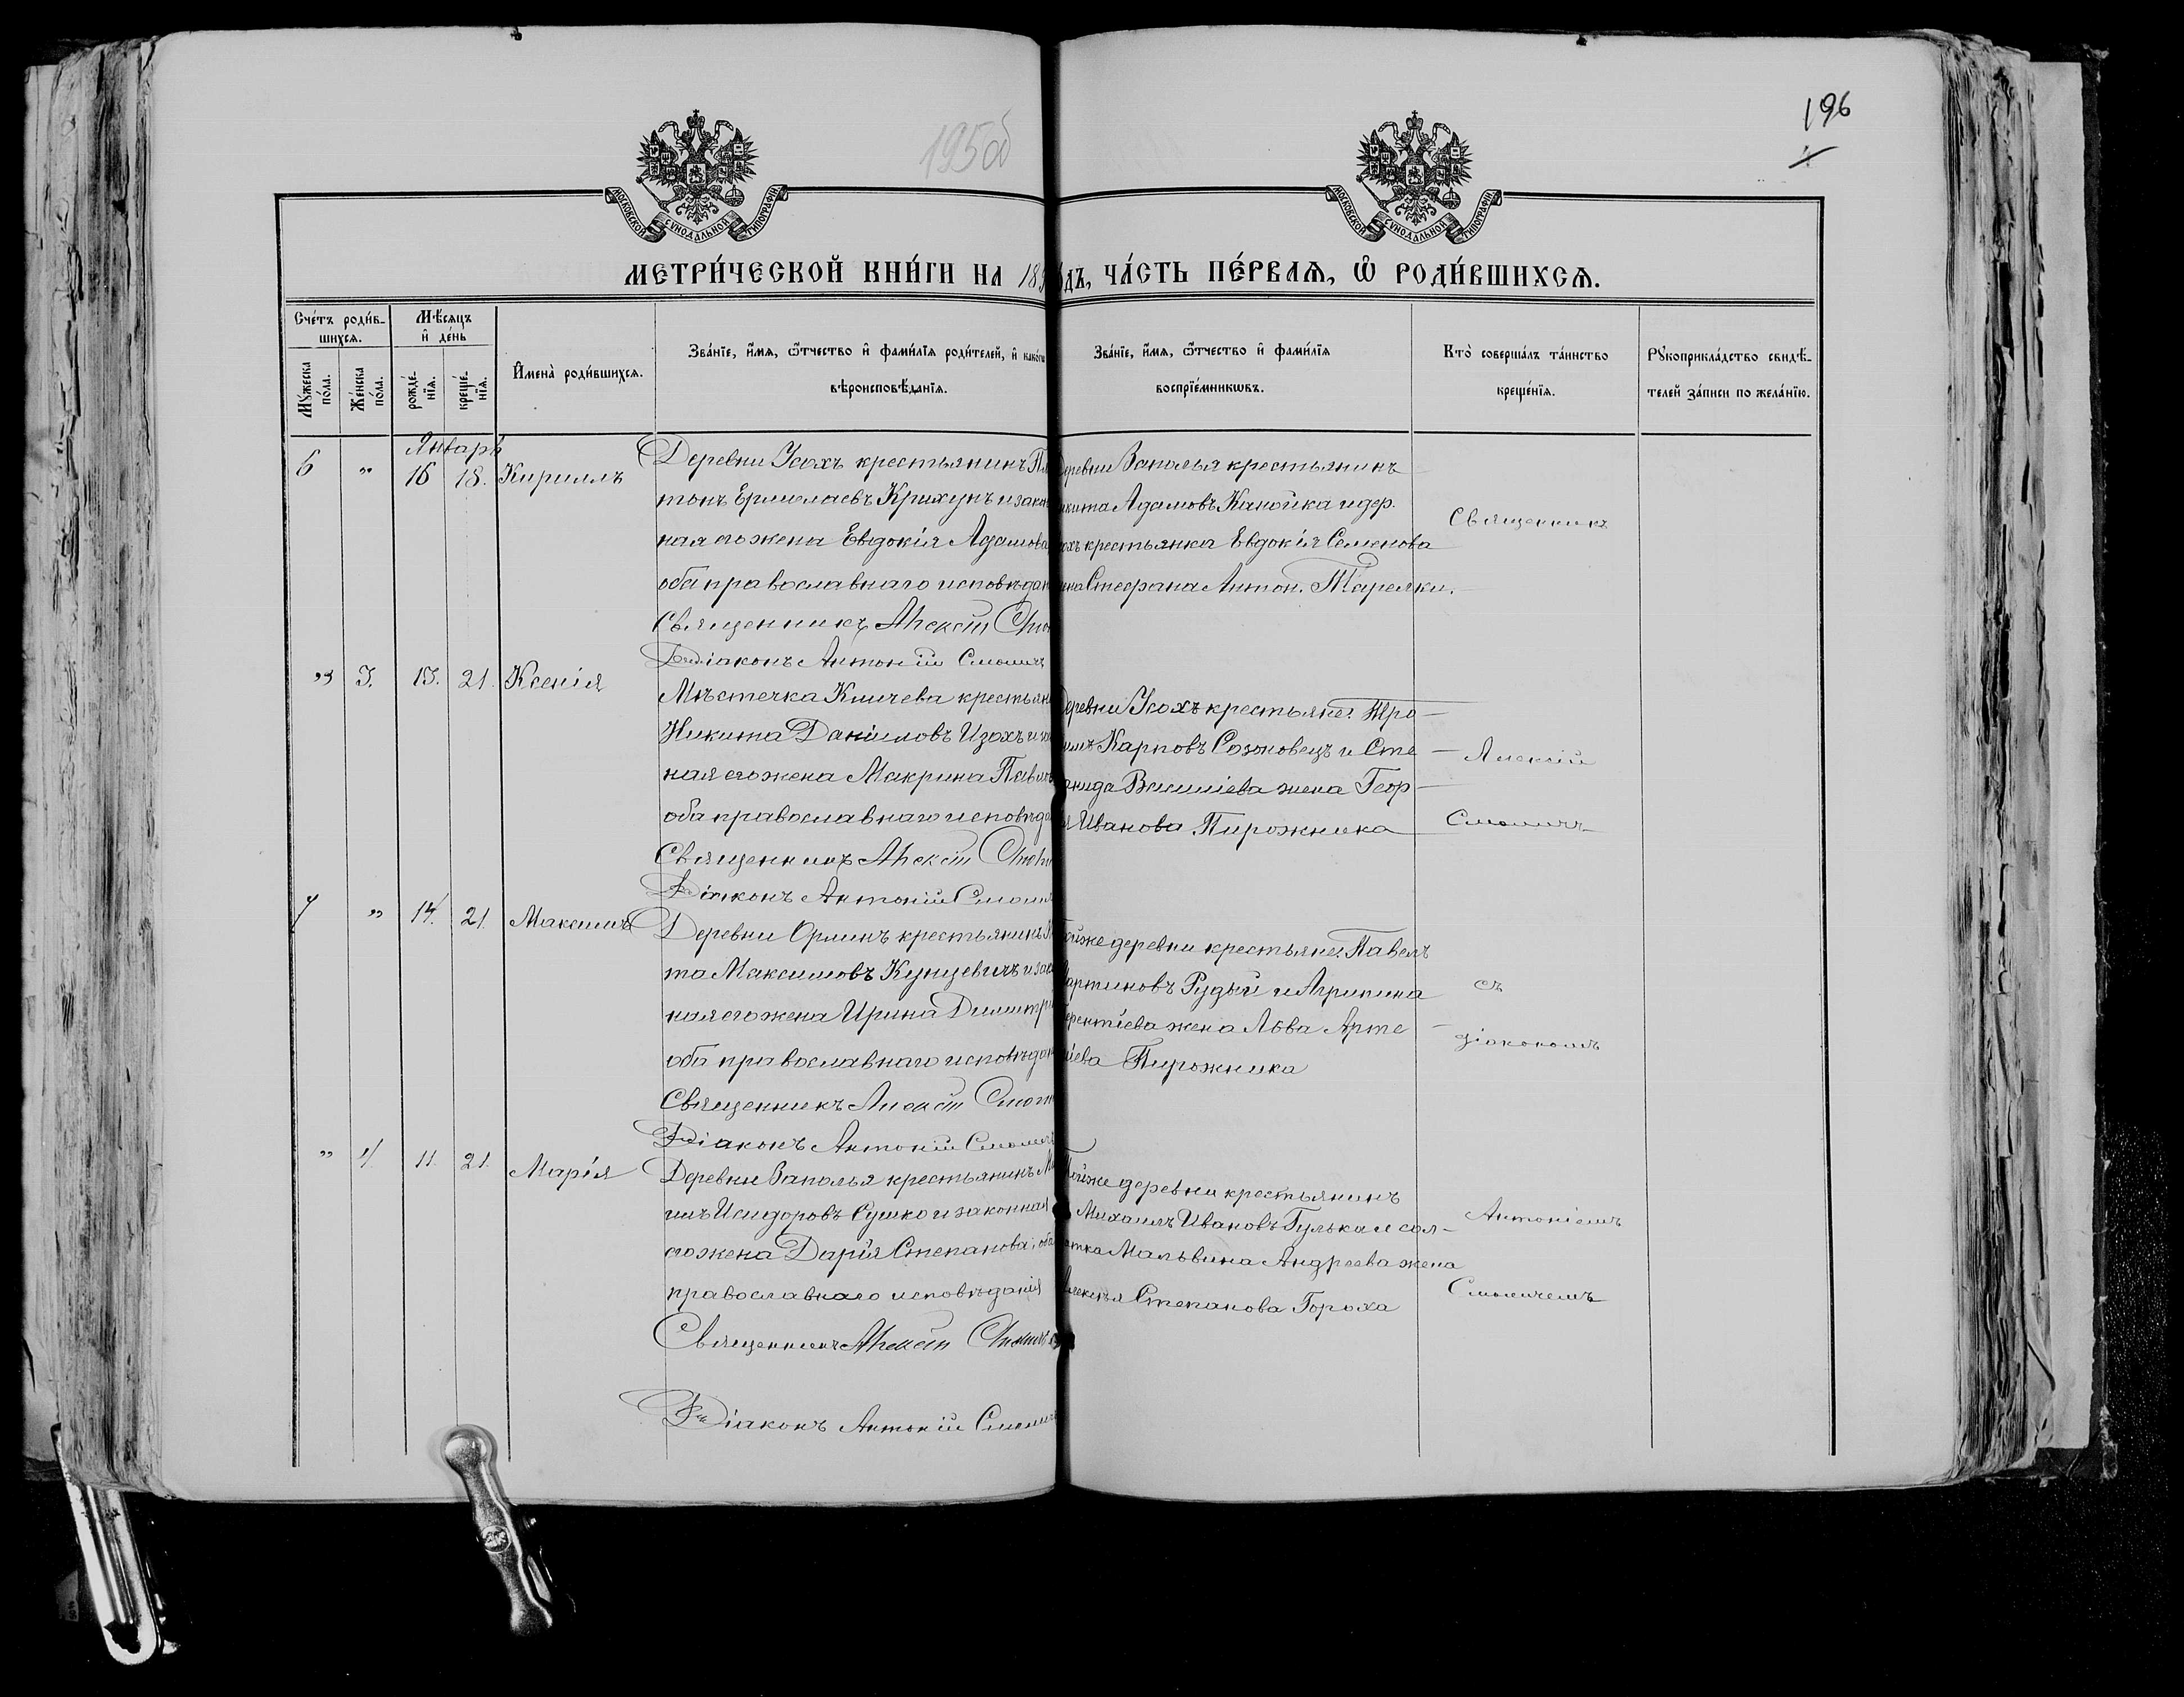 195об
196
4
МОСКОВСКОЙ СѴНОДАЛЬНОЙ ТИПОГРАФІИ
МОСКОВСКОЙ СѴНОДАЛЬНОЙ ТИПОГРАФІИ
МЕТРИ́ЧЕСКОЙ КНИ́ГИ НА 189 ДЪ, ЧА́СТЬ ПЕ́РВАѦ, Ѡ РОДИ́ВШИХСѦ.
Сче́тъ роди́в-
шихсѧ.
Мѣ́сяцъ
и де́нь
Мꙋжеска по́ла.
Же́нска по́ла.
рожде́-
нїѧ.
креще́-
нїѧ.
Имена̀ роди́вшихсѧ.
Зва́нїе, и́мѧ, ѻ҆́тчество и фами́лїѧ роди́телей, и како́гѡ
вѣроисповѣ́данїѧ.
Зва́нїе, и́мѧ, ѻ҆́тчество и фами́лїѧ
воспрїе́мникѡвъ.
Кто̀ соверша́лъ та́инство
креще́нїѧ.
Рꙋкоприкла́дство свидѣ́-
телей за́писи по жела́нїю.
Январь
6 " 16 18. Кириллъ
Деревни Усохъ крестьянинъ Пла
тонъ Ермолаевъ Крихунъ и закон
ная его жена Евдокія Адамова
оба православнаго исповѣдан
Священникъ Алексѣй Смол
Діаконъ Антоній Смолич
Деревни Заполья крестьянинъ
икита Адамовъ Канойка и дер.
охъ крестьянка Евдокія Семенова
ена Стефана Антон. Тарелки.
" 3. 13. 21. Ксенія
Мѣстечка Кличева крестьян
Никита Даніиловъ Изохъ и зак
ная его жена Макрина Павлов
оба православнаго исповѣда
Священникъ Алексѣй Смол
Діаконъ Антоній Смолич
Деревни Усохъ крестьяне: Тро-
имъ Карповъ Созоновецъ и Сте-
анида Василіева жена Геор-
я Иванова Пирожника
7 " 14. 21. Максимъ
Деревни Орлинъ крестьянинъ
та Максимовъ Кунцевичъ и зак
ная его жена Ирина Димитрі
оба православнаго исповѣдан
Священникъ Алексѣй Смол
Діаконъ Антоній Смолич
Тойже деревни крестьяне: Павелъ
артиновъ Рудый и Агрипина
ерентіева жена Льва Арте-
іева Пирожника
" 4. 11. 21. Марія
Деревни Заполья крестьянинъ
имъ Исидоровъ Сушко и законная
его жена Дарія Степанова, оба
православнаго исповѣданія
Священникъ Алексѣй Смолич
Діаконъ Антоній Смолич
Тойже деревни крестьянинъ
Михаилъ Ивановъ Гулька и сол-
атка Мальвина Андреева жена
лексѣя Степанова Гороха
Священникъ
Алексѣй
Смоличъ
съ
діакономъ
Антоніемъ
Смоличемъ